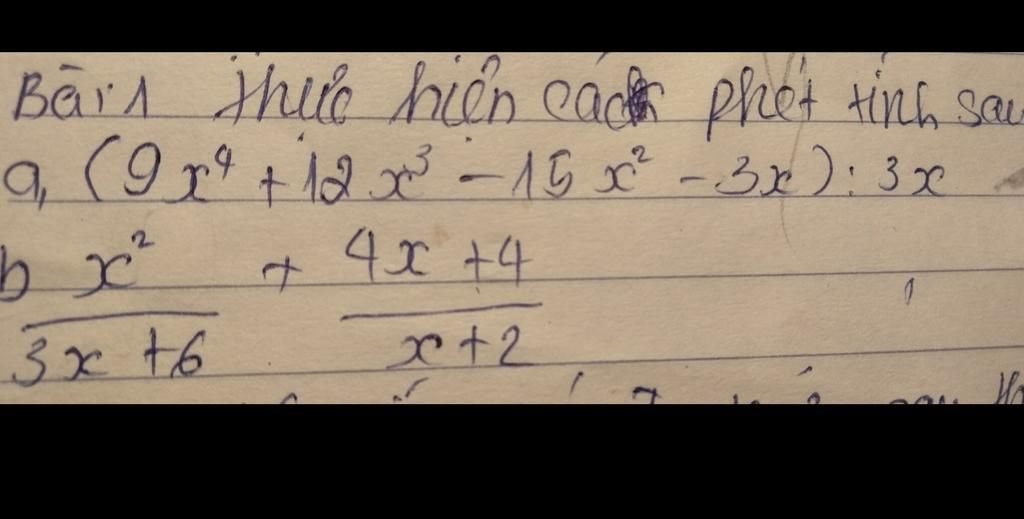 Bài 1 thực hiện các phét tính sau
a, (9x⁴ + 12x³ - 15x² - 3x) : 3x
b x² / 3x + 6 + 4x + 4 / x + 2